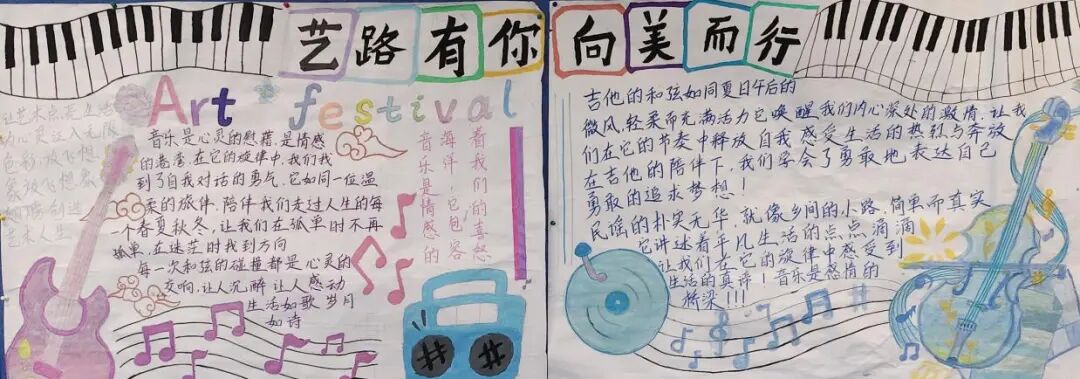 艺路有你 向美而行
Art festival
让艺术点亮生
心灵注入无限
色彩,放飞想
象放飞想象
创造
艺术人生
音乐是心灵的慰藉,是情感
的,在它的旋律中,我们找
到了自我对话的勇气。它如同一位温
柔的旅伴,陪伴我们走过人生的每
一个春夏秋冬,让我们在孤单时不再
孤单,在迷茫时找到方向
每一次和弦的碰撞都是心灵的
交响,让人沉醉让人感动
生活如歌 岁月
如诗
音乐是情感的
海洋,它包容
着我们的喜怒
吉他的和弦如同夏日午后的
微风,轻柔而充满活力它唤醒我们内心深处的激情,让我
们在它的节奏中释放自我感受生活的热烈与奔放
在吉他的陪伴下,我们学会了勇敢地表达自己
勇敢的追求梦想!
民谣的朴实无华,就像乡间的小路,简单而真实
它讲述着平凡生活的点点滴滴
让我们在它的旋律中感受到
生活的真谛!音乐是感情的
桥梁!!!